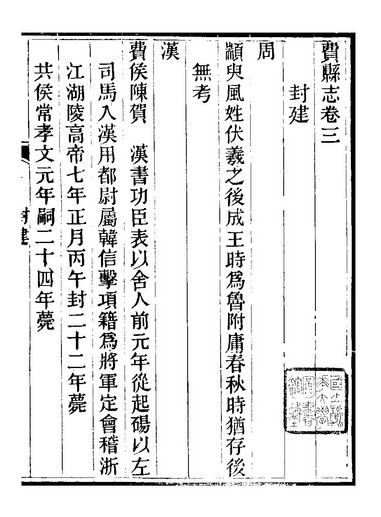 費縣志卷三
封建
周
顓臾風姓伏羲之後成王時爲魯附庸春秋時猶存後
無考
漢
費侯陳賀　漢書功臣表以舍人前元年從起碭以左
司馬入漢用都尉屬韓信擊項籍爲將軍定會稽浙
江湖陵高帝七年正月丙午封二十二年薨
共侯常孝文元年嗣二十四年薨
封建